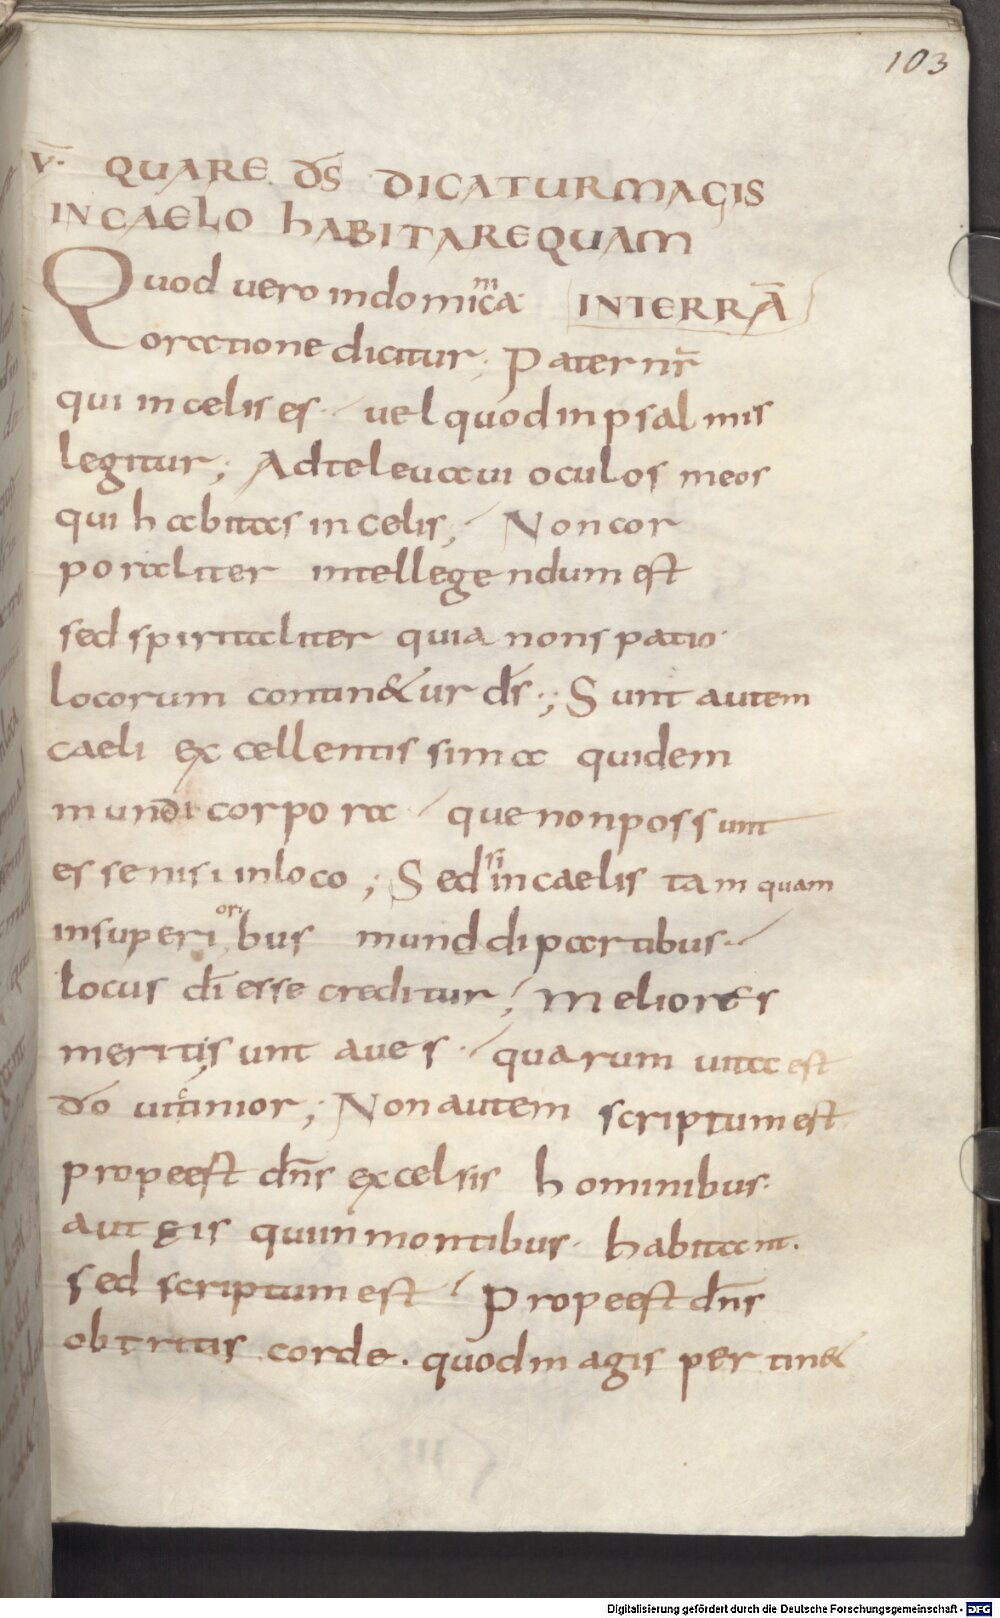 103
V̄· QUARE D̄S DICATUR MAGIS
IN CAELO hABITARE QUAM
Quod uero in domiᵐca INTERRĀ
oratione dicitur; Pater nr̄
qui in celis es· uel quod in psalmis
legitur; Ad te leuaui oculos meos
qui habitas in celis; Non cor
poraliter intellegendum est
sed spiritaliter quia non spatio
locorum contin&ur d̄s·; Sunt autem
caeli excellentissima quidem
mundi corpora· que non possunt
esse nisi in loco; Sed si in caelis tamquam
in superioribus mund di partibus·
locus dī esse creditur; Meliores
meritis sunt aues· quarum uita est
d̄o uicinior; Non autem scriptum est
prope est dn̄s excelsis hominibus·
aut eis qui in montibus· habitant.
sed scriptum est· Prope est dn̄s
obtritis corde. quod magis pertin&
Digitalisierung gefördert durch die Deutsche Forschungsgemeinschaft - DFG